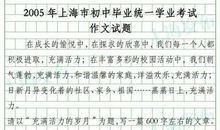 2005年上海市初中毕业统一学业考试
作文试题
在成长的愉悦中，在探求的欣喜中，我们每一个人都
积极进取，充满活力；在丰富多彩的校园活动中，我们朝
气蓬勃，充满活力。和谐温馨的家庭，洋溢欢乐，充满活力；
日新月异变化着的社区、家乡、祖国……蒸蒸日上，充满活
力。
请以“充满活力的岁月”为题，写一篇600字左右的文章。